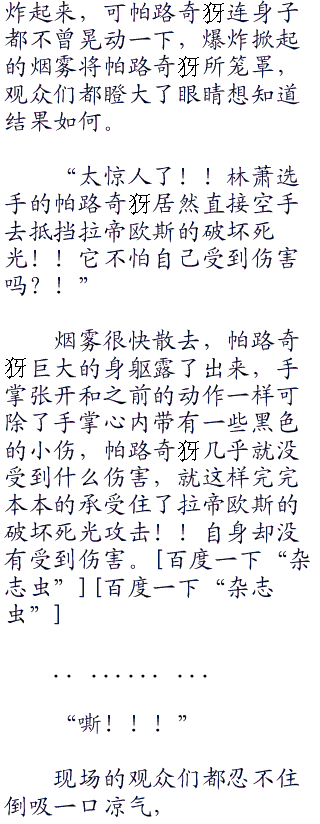 炸起来，可帕路奇犽连身子
都不曾晃动一下，爆炸掀起
的烟雾将帕路奇犽所笼罩，
观众们都瞪大了眼睛想知道
结果如何。
“太惊人了！！林萧选
手的帕路奇犽居然直接空手
去抵挡拉帝欧斯的破坏死
光！！它不怕自己受到伤害
吗？！”
烟雾很快散去，帕路奇
犽巨大的身躯露了出来，手
掌张开和之前的动作一样可
除了手掌心内带有一些黑色
的小伤，帕路奇犽几乎就没
受到什么伤害，就这样完完
本本的承受住了拉帝欧斯的
破坏死光攻击！！自身却没
有受到伤害。[百度一下“杂
志虫”][百度一下“杂志
虫”]
．．．．．．．．．．．
“嘶！！！”
现场的观众们都忍不住
倒吸一口凉气，